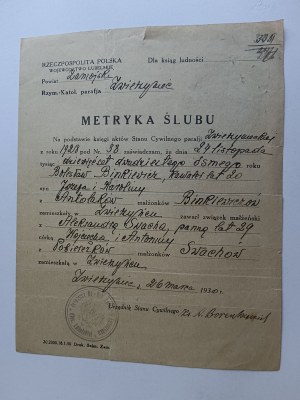 RZECZPOSPOLITA POLSKA
WOJEWÓDZTWO LUBELSKIE
Dla ksiąg ludności
Powiat Zamojski
Rzym.-Katol. parafja Zwierzyniec
METRYKA ŚLUBU
Na podstawie księgi aktów Stanu Cywilnego parafji Zwierzynieckiej
z roku 1928 pod Nr. 98 zaświadczam, że dnia 24 listopada
tysiąc dziewięćset dwudziestego ósmego roku
Bolesław Binkiewicz, kawaler lat 20
syn Józefa i Karoliny
z Antolaków małżonków Binkiewiczów
zamieszkały w Zwierzyńcu zawarł związek małżeński
z Aleksandrą Swacha, panną lat 29
córką Wojciecha i Antoniny
z małżonków Swachów
zamieszkałą w Zwierzyńcu
Zwierzyniec, 26 marca 1930 r.
Urzędnik Stanu Cywilnego